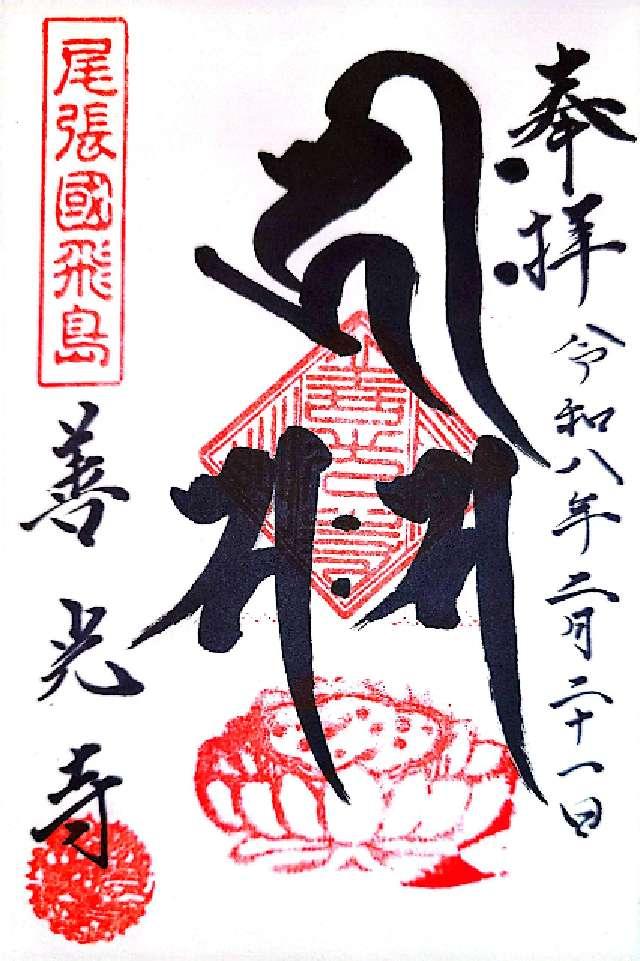 奉拝
令和八年二月二十一日
善光寺
尾張國飛島
善光寺